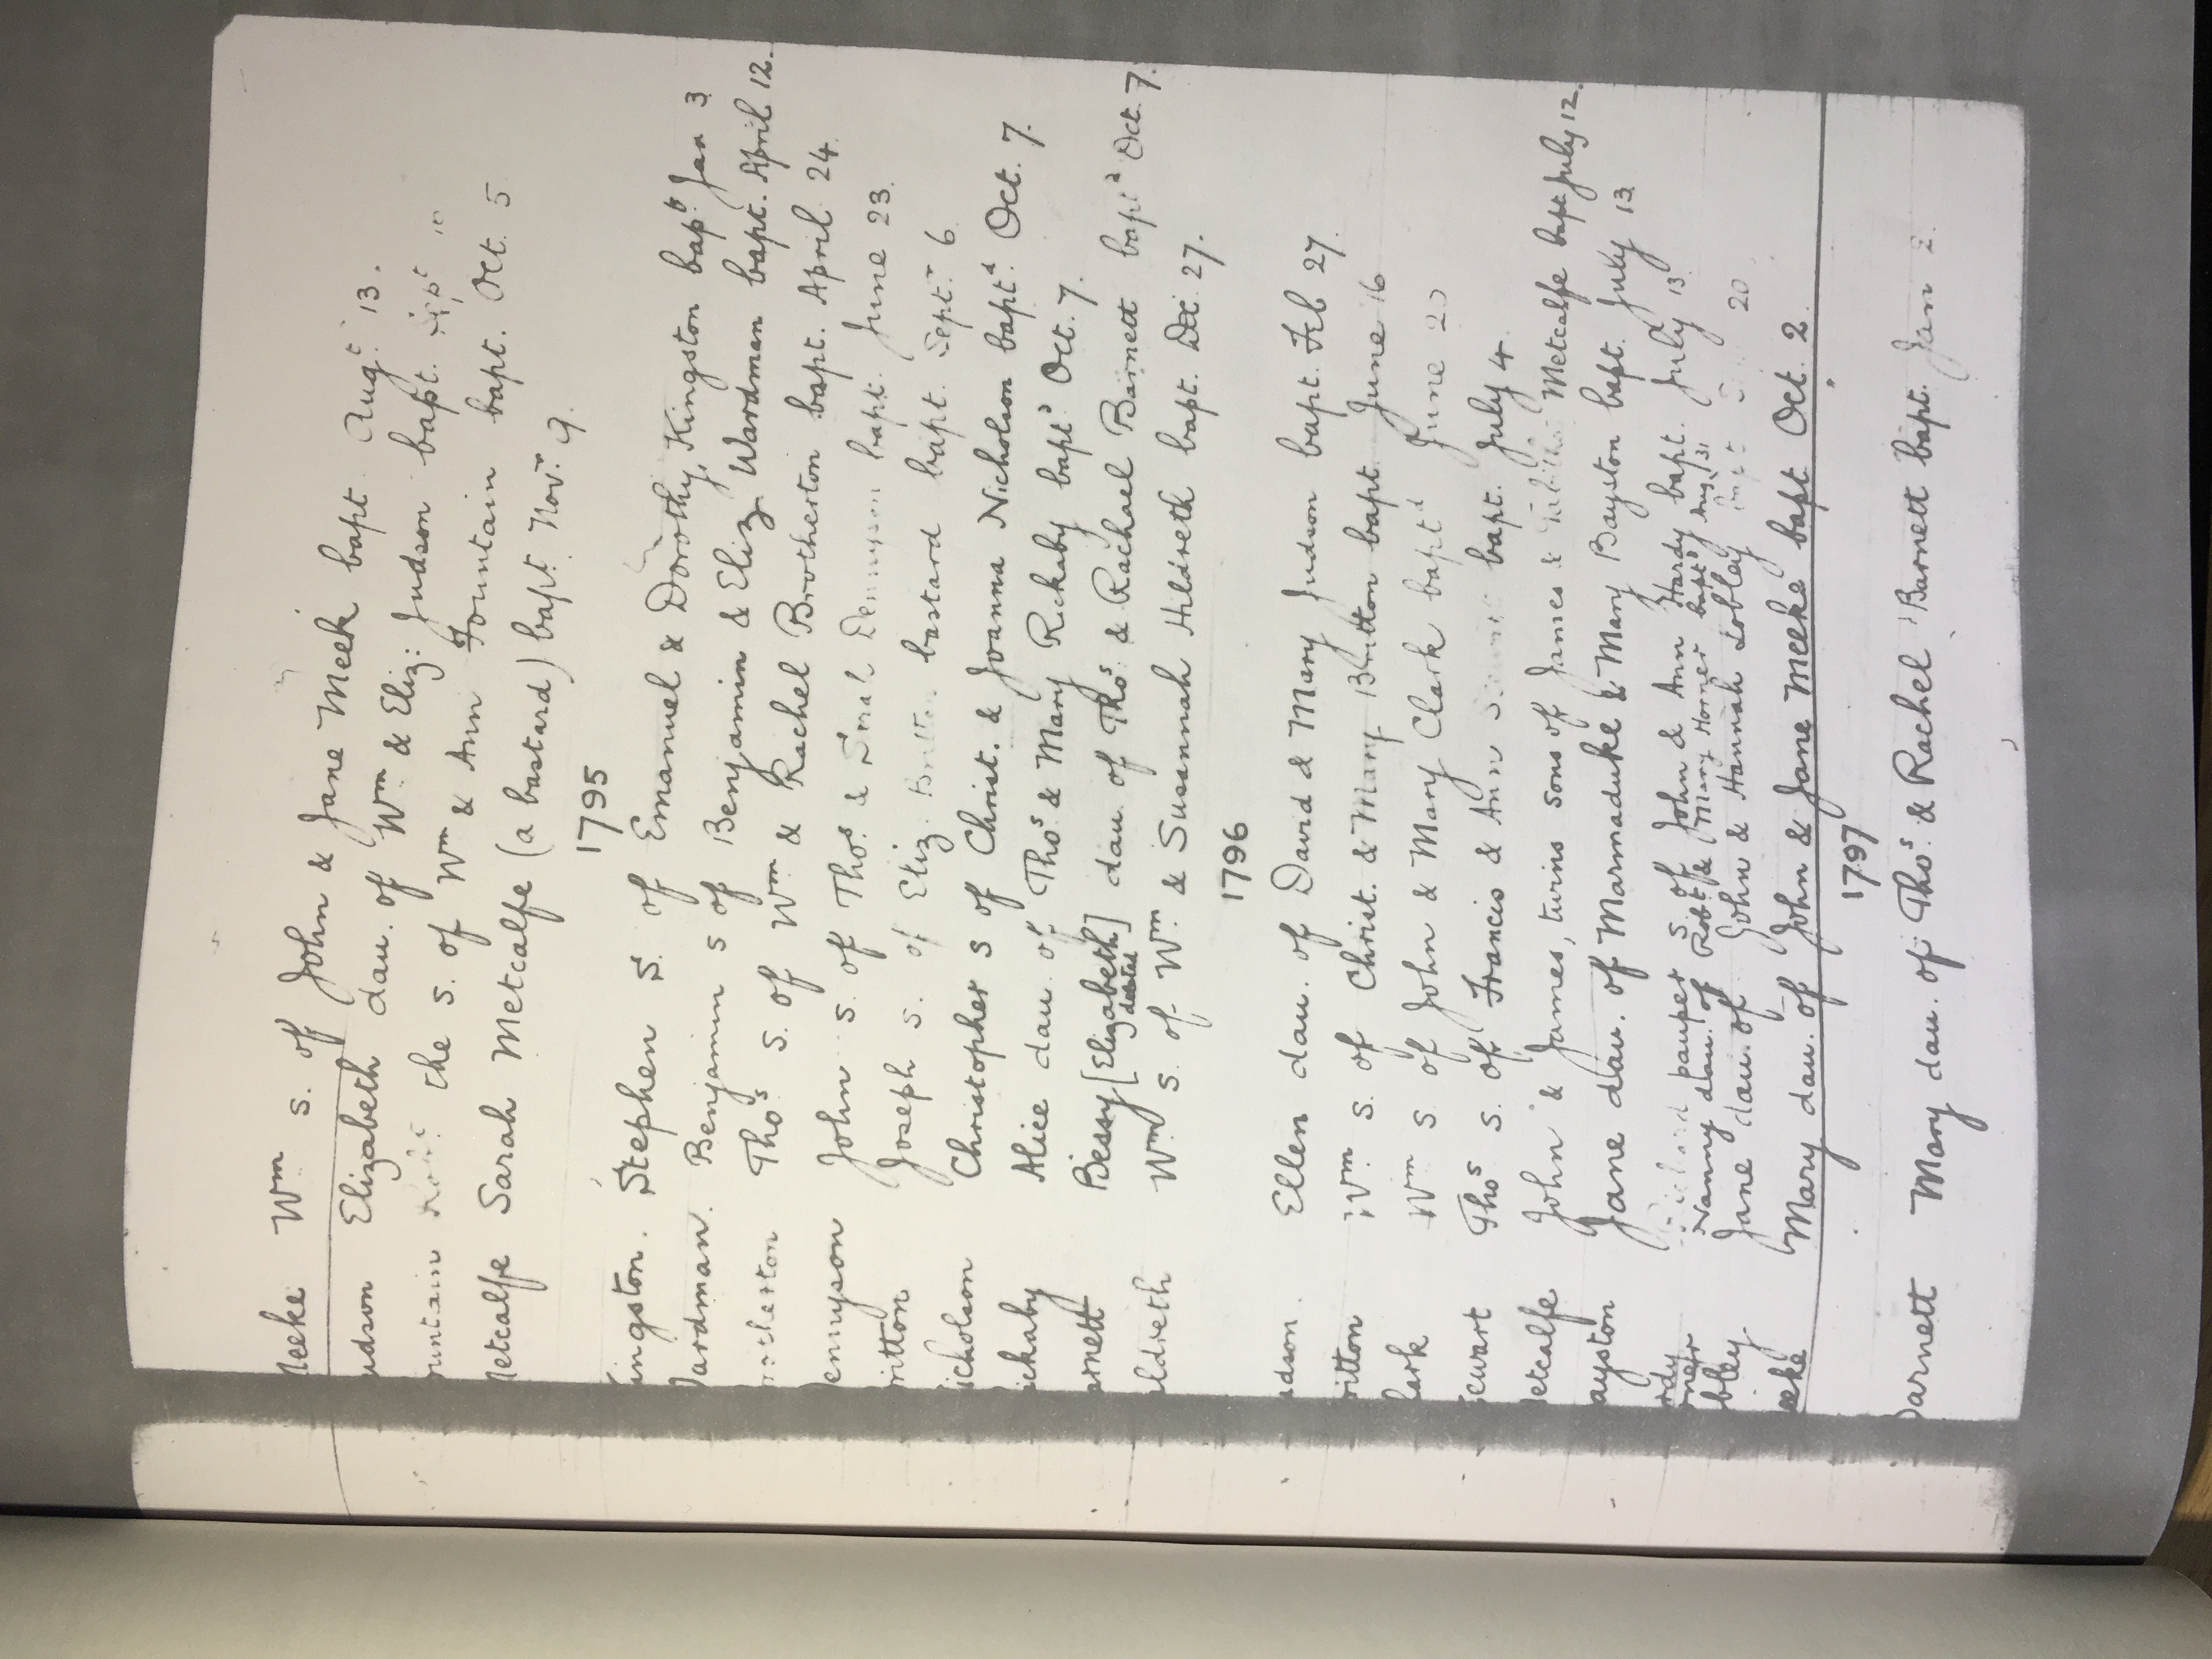 Meeke Wm s. of John & Jane Meek bapt Augt 13.
udson Elizabeth dau. of Wm & Eliz: Judson bapt. Sept 10
ountain the s. of Wm & Ann Fountain bapt. Oct. 5
Metcalfe Sarah Metcalfe (a bastard) bapt. Novr 9.
1795
ingston. Stephen S. of Emanuel & Dorothy Kingston bapt. Jan 3
Wardman. Benjamin s of Benjamin & Eliz Wardman bapt. April 12.
rotherton Thos S. of Wm & Rachel Brotherton bapt. April 24.
ennyson John s. of Thos. & Sarah Dennyson bapt. June 23.
ritton Joseph s. of Eliz. Britton bastard bapt. Septr 6.
icholson Christopher s of Christ. & Joanna Nicholson baptd Oct. 7.
ickaby Alice dau. of Thos & Mary Rickaby baptd Oct. 7.
arnett Bessy [Elizabeth] dau. of Thos. & Rachael Barnett baptd Oct. 7.
ildreth Wm S. of Wm. & Susannah Hildreth bapt. Dec. 27.
1796
udson. Ellen dau. of David & Mary Judson bapt. Feb 27.
ritton Wm s. of Christ. & Mary Britton bapt. June 16
lark Wm s of John & Mary Clark baptd June 20
tewart Thos s. of Francis & Ann bapt. July 4.
etcalfe John & James, twins sons of James & Tabitha Metcalfe bapt. July 12.
ayston Jane dau. of Marmaduke & Mary Bayston bapt. July 13.
rdy Richard pauper S. of John & Ann Hardy bapt. July 13
rner Nanny dau. of Robt & Mary Horner baptd Aug. 31
bley Jane dau. of John & Hannah Lobley bapt 20
eeke Mary dau. of John & Jane Meeke bapt Oct. 2.
1797
Barnett Mary dau. of Thos. & Rachel Barnett bapt. Jan 2.